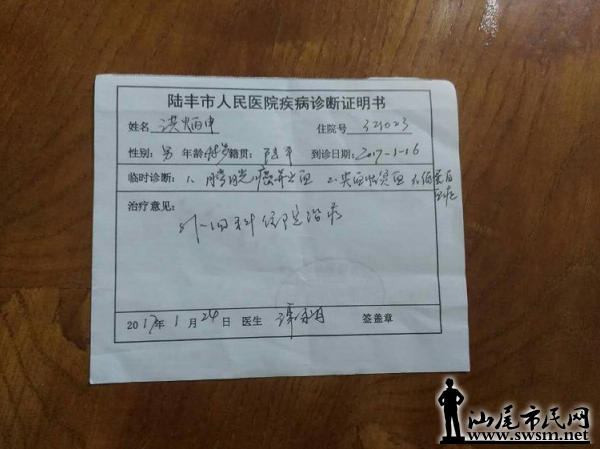 陆丰市人民医院疾病诊断证明书
姓名 洪炳申 住院号 321023
性别: 男 年龄 48岁 籍贯: 陆丰 到诊日期: 2017-1-16
临时诊断: 1、膀胱癌并出血 2、失血性贫血 3、低蛋白血症
治疗意见:
外一科住院治疗
2017年1月24日 医生 签盖章
汕尾市民网
www.swsm.net